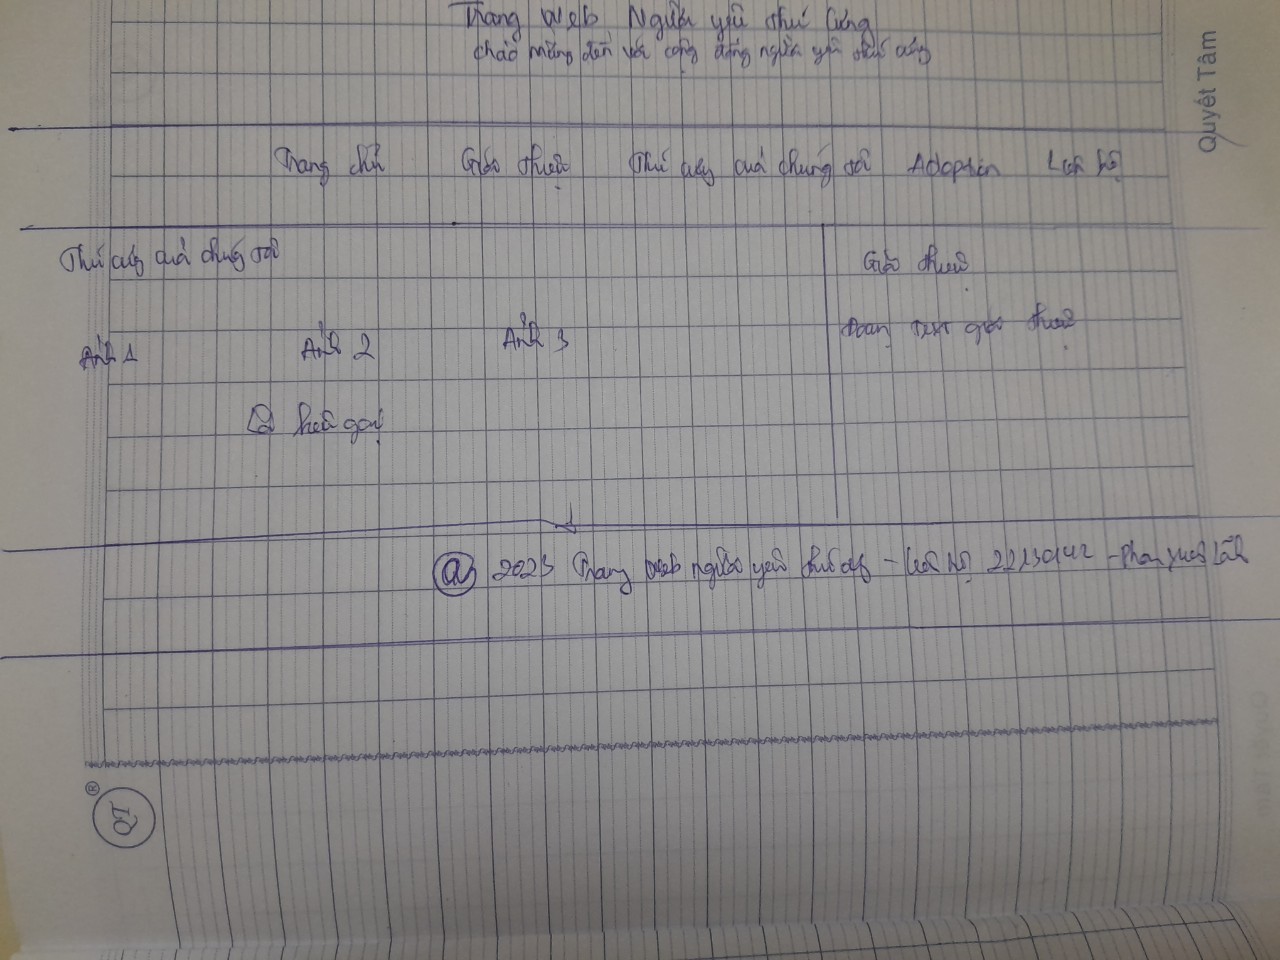 Trang Web Người yêu thú cưng
chào mừng đến với cộng đồng người yêu thú cưng
Quyết Tâm
Trang chủ Giới thiệu Thú cưng của chúng tôi Adoption Liên hệ
Thú cưng của chúng tôi
Giới thiệu
Ảnh 1 Ảnh 2 Ảnh 3
Đoạn text giới thiệu
2023 Trang web người yêu thú cưng - Liên hệ 22130142 - Phan Xuân
QT